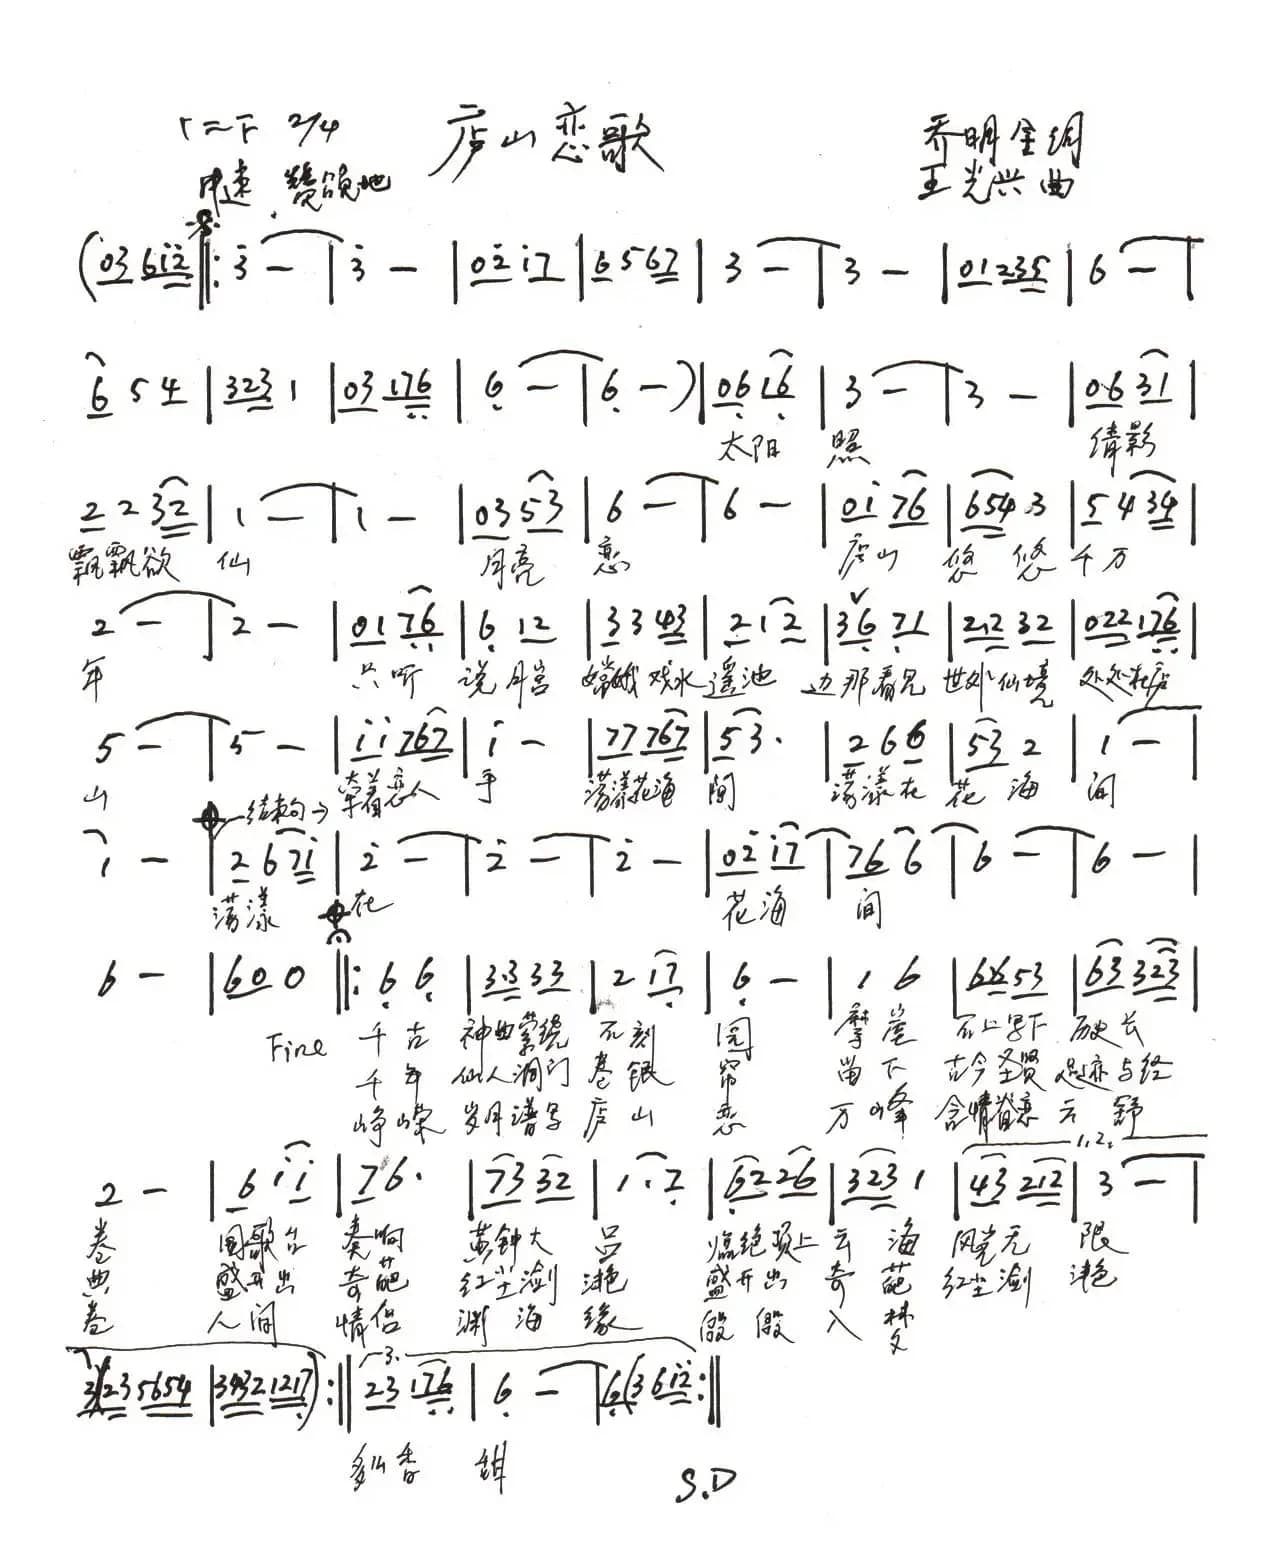 1=F 2/4 庐山恋歌 乔明金词
中速 赞颂地 王光兴 曲
(03 612 ‖: 3 — | 3 — | 02 17 | 6567 | 3 — | 3 — | 01235 | 6 — |
6 5 4 | 323 1 | 03 176 | 6 — | 6 —) | 06 16 | 3 — | 3 — | 06 31 |
太阳 照 倩影
2 2 32 | 1 — | 1 — | 03 53 | 6 — | 6 — | 01 76 | 654 3 | 5 4 34 |
飘飘欲 仙 月亮 恋 庐山 悠 悠 千万
2 — | 2 — | 01 76 | 6 12 | 33 43 | 2 1 2 | 36 71 | 2·2 32 | 022 176 |
年 只听 说 月宫 嫦娥 戏水 瑶池 边 那看见 世外仙境 处处在庐
5 — | 5 — | 11 767 | 1 — | 77 767 | 53· | 2 6 6 | 53 2 | 1 — |
山 牵着恋人 手 荡漾花海 间 荡漾在 花 海 间
结束句→
1 — | 2 6 71 | 2 — | 2 — | 2 — | 02 17 | 76 6 | 6 — | 6 — |
荡漾 在 花海 间
6 — | 60 0 ‖: 6 6 | 3·3 33 | 2 17 | 6 — | 1 6 | 66 53 | 63 323 |
Fine 千 古 神曲萦绕 石 刻 园 摩 崖 石上写下 历史长
千 年 仙人洞门 卷 银 帘 留 下 古今圣贤 足迹与经
峥 嵘 岁月谱写 庐 山 恋 万 峰 含情 云 舒
1,2,
2 — | 6 11 | 76· | 73 32 | 1·7 | 62 26 | 323 1 | 43 212 | 3 — |
卷 国歌台 奏响 黄钟大 吕 临绝顶上 云 海 风光无 限
典 盛开出 奇葩 红尘 滟 盛开出 奇 葩 红尘 滟
卷 人间 情侣 渊 海 缘 殷 殷 入 林
3(23 5654 | 3432 1217) :‖ 3. 23 176 | 6 — | 6(3 612 :‖
多么香 甜
S.D